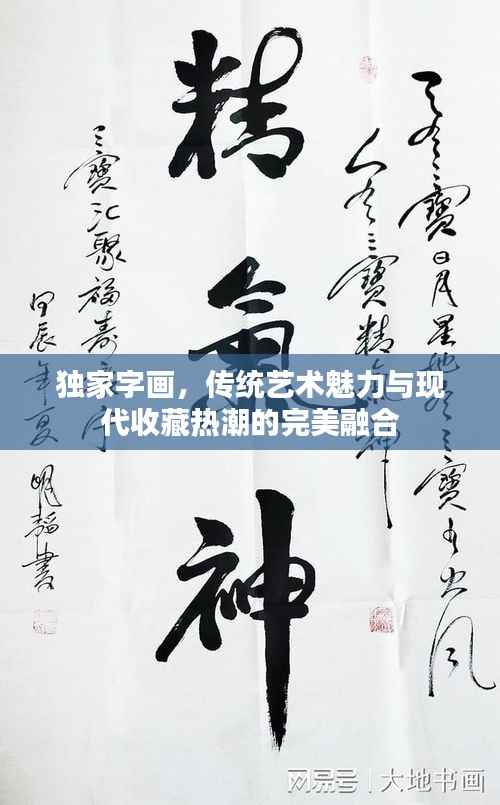 天有三寶日月星地有三寶水火風
人有三寶精氣神
精氣神
三寶汇聚福壽
甲辰年夏 明書
独家字画，传统艺术魅力与现
代收藏热潮的完美融合
网易号 | 大地书画